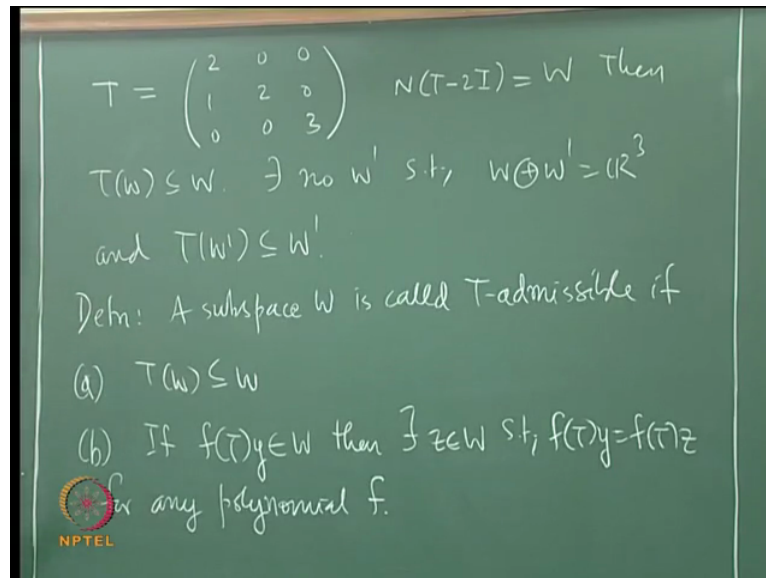 T = ( 2 0 0 N(T-2I) = W Then
1 2 0
0 0 3 )
T(W) ⊆ W. ∃ no W' s.t, W⊕W' = ℝ³
and T(W') ⊆ W'.
Defn: A subspace W is called T-admissible if
(a) T(W) ⊆ W
(b) If f(T)y∈W then ∃ z∈W s.t, f(T)y=f(T)z
for any polynomial f.
NPTEL